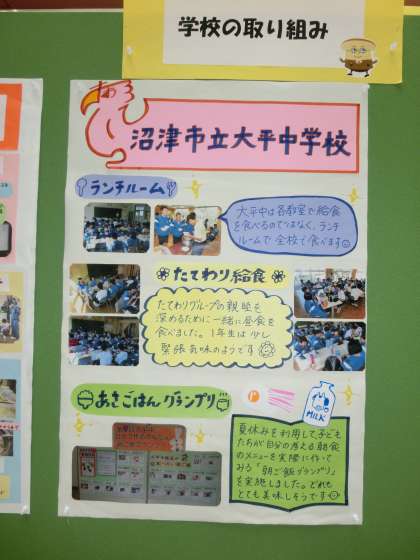 学校の取り組み
沼津市立大平中学校
ランチルーム
大平中は各教室で給食
を食べるのでなく、ランチ
ルームで全校で食べます
たてわり給食
たてわりグループの親睦を
深めるために一緒に昼食を
食べました。1年生は少し
緊張気味のようです
あさごはんグランプリ
MILK
夏休みを利用して、子ども
たちが自分の考える朝食
のメニューを実際に作って
みる「朝ご飯グランプリ」
を実施しました。どれも
とても美味しそうです